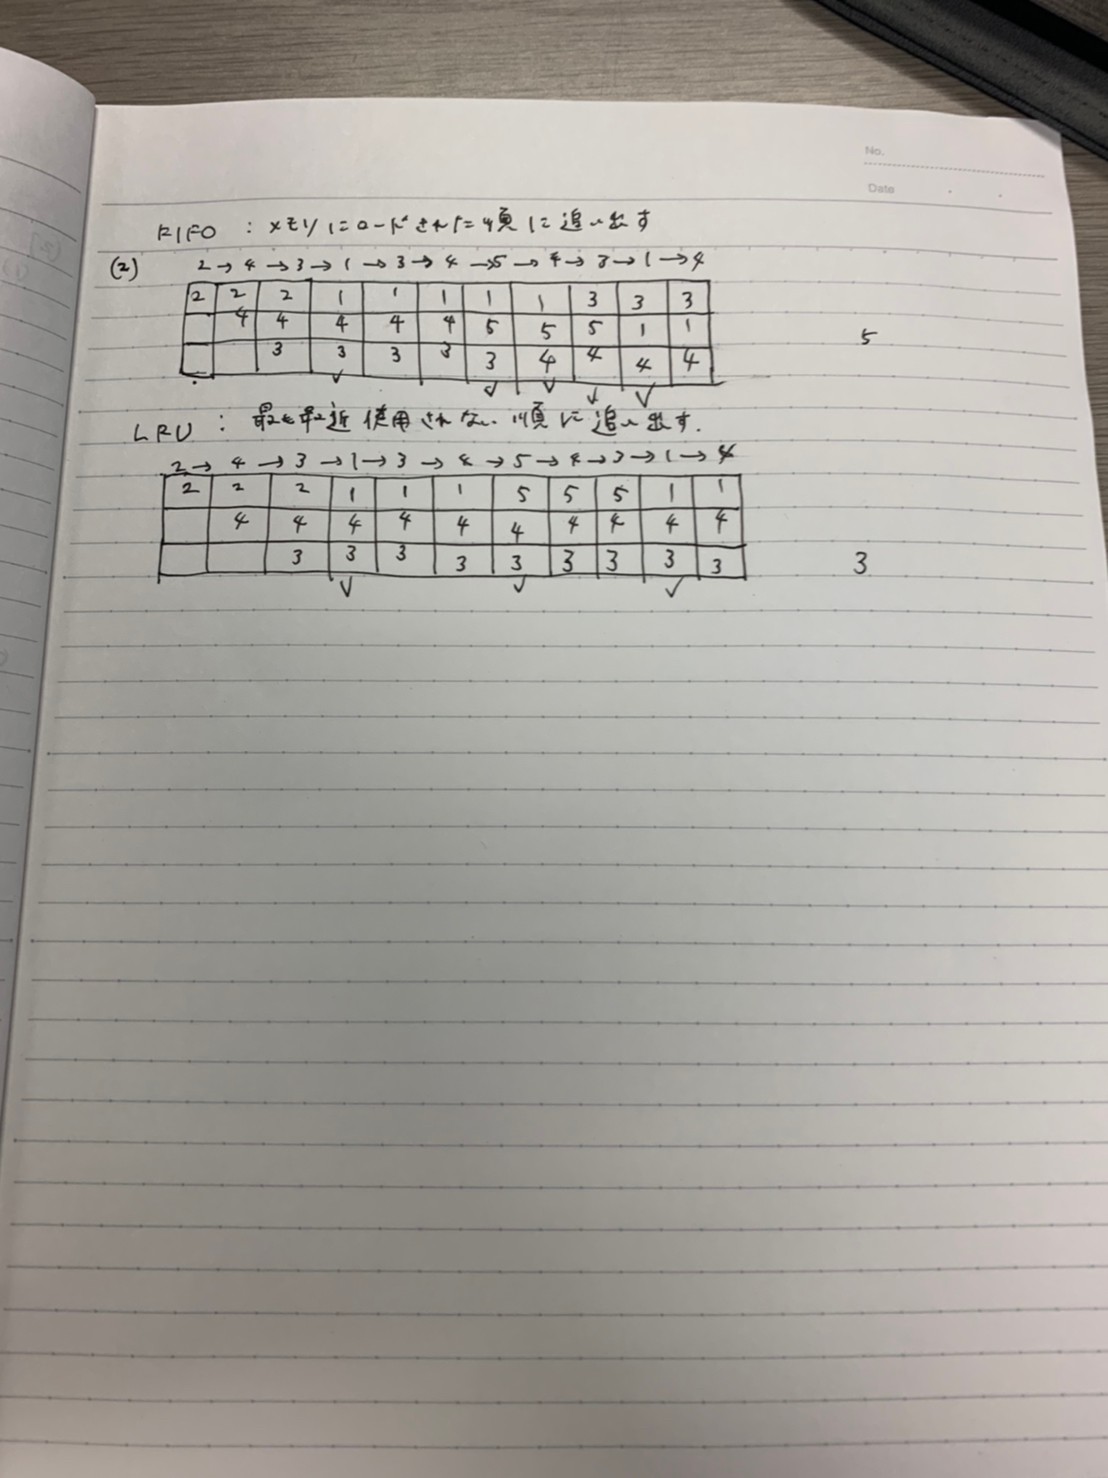 No.
Date
FIFO : メモリにロードされた順に追い出す
(2) 2→4→3→1→3→4→5→4→3→1→4
2 2 2 1 1 1 1 1 3 3 3
4 4 4 4 4 5 5 5 1 1
3 3 3 3 3 4 4 4 4
5
✓ ✓ ✓ ✓ ✓
LRU : 最も最近使用されない順に追い出す.
2→4→3→1→3→4→5→4→3→1→4
2 2 2 1 1 1 5 5 5 1 1
4 4 4 4 4 4 4 4 4 4
3 3 3 3 3 3 3 3 3
3
✓ ✓ ✓